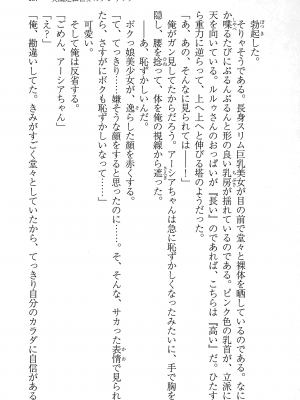 勃起した。
そりゃそうである。長身スリム巨乳美女が目の前で堂々と裸体を晒しているのである。なに
か喋るたびにぷるんぷるんと形の良い乳房が揺れているのである。ピンク色の乳首が、立派に
天を向いている。ルルゥさんのおっぱいが『長い』のであれば、こちらは『高い』だ。ひたす
ら重力に逆らって、上へ上へと伸びる塔のようだった。
「あ、あの、そんなに見られては――！」
俺がガン見してたからだろう。アーシアちゃんは急に恥ずかしくなったみたいに、手で胸を
隠し、腰を捻って、体を俺の視線から遮った。
――あ、恥ずかしいんだ。
ボクっ娘美少女が、逸らした顔を赤くする。
「て、てっきり……嫌そうな顔をすると思ったのに……。そ、そんな、サカった表情で見られ
たら、さすがにボクも恥ずかしいなって……」
可愛い。
そして俺は反省する。
「ごめん、アーシアちゃん」
「え？」
「俺、勘違いしてた。きみがすごく堂々としていたから、てっきり自分のカラダに自信がある